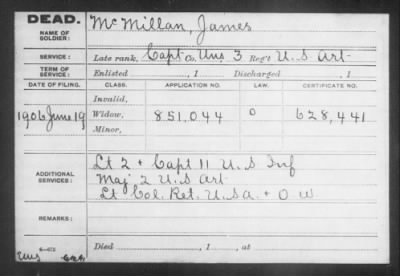 DEAD.
NAME OF SOLDIER: McMillan, James
SERVICE: Late rank, Capt Co. Uns 3 Reg't U. S Art
TERM OF SERVICE: Enlisted , 1 Discharged , 1
DATE OF FILING. CLASS. APPLICATION NO. LAW. CERTIFICATE NO.
Invalid,
1906 June 19 Widow, 851,044 O 628,441
Minor,
ADDITIONAL SERVICES: Lt 2 + Capt 11 U. S Inf
Maj 2 U. S Art
Lt Col. Ret. U.S.A. + O W
REMARKS:
6-472 Died , 1 , at
Uns